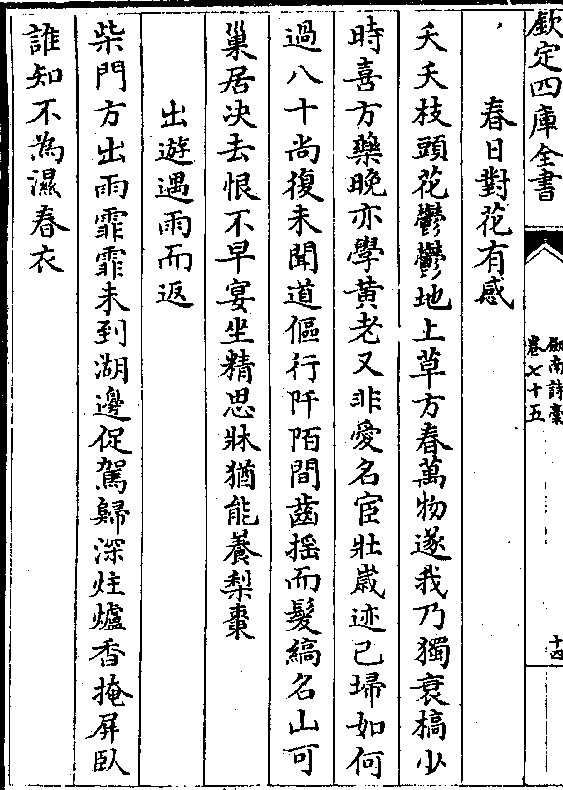 欽定四庫全書
劔南詩稾
卷七十五
十四
春日對花有感
夭夭枝頭花鬱鬱地上草方春萬物遂我乃獨衰槁少
時喜方藥晚亦學黄老又非愛名宦壯歲迹已埽如何
過八十尚復未聞道傴行阡陌間齒揺而髮縞名山可
巢居决去恨不早宴坐精思牀猶能養梨棗
出遊遇雨而返
柴門方出雨霏霏未到湖邊促駕歸深炷爐香掩屏臥
誰知不為濕春衣